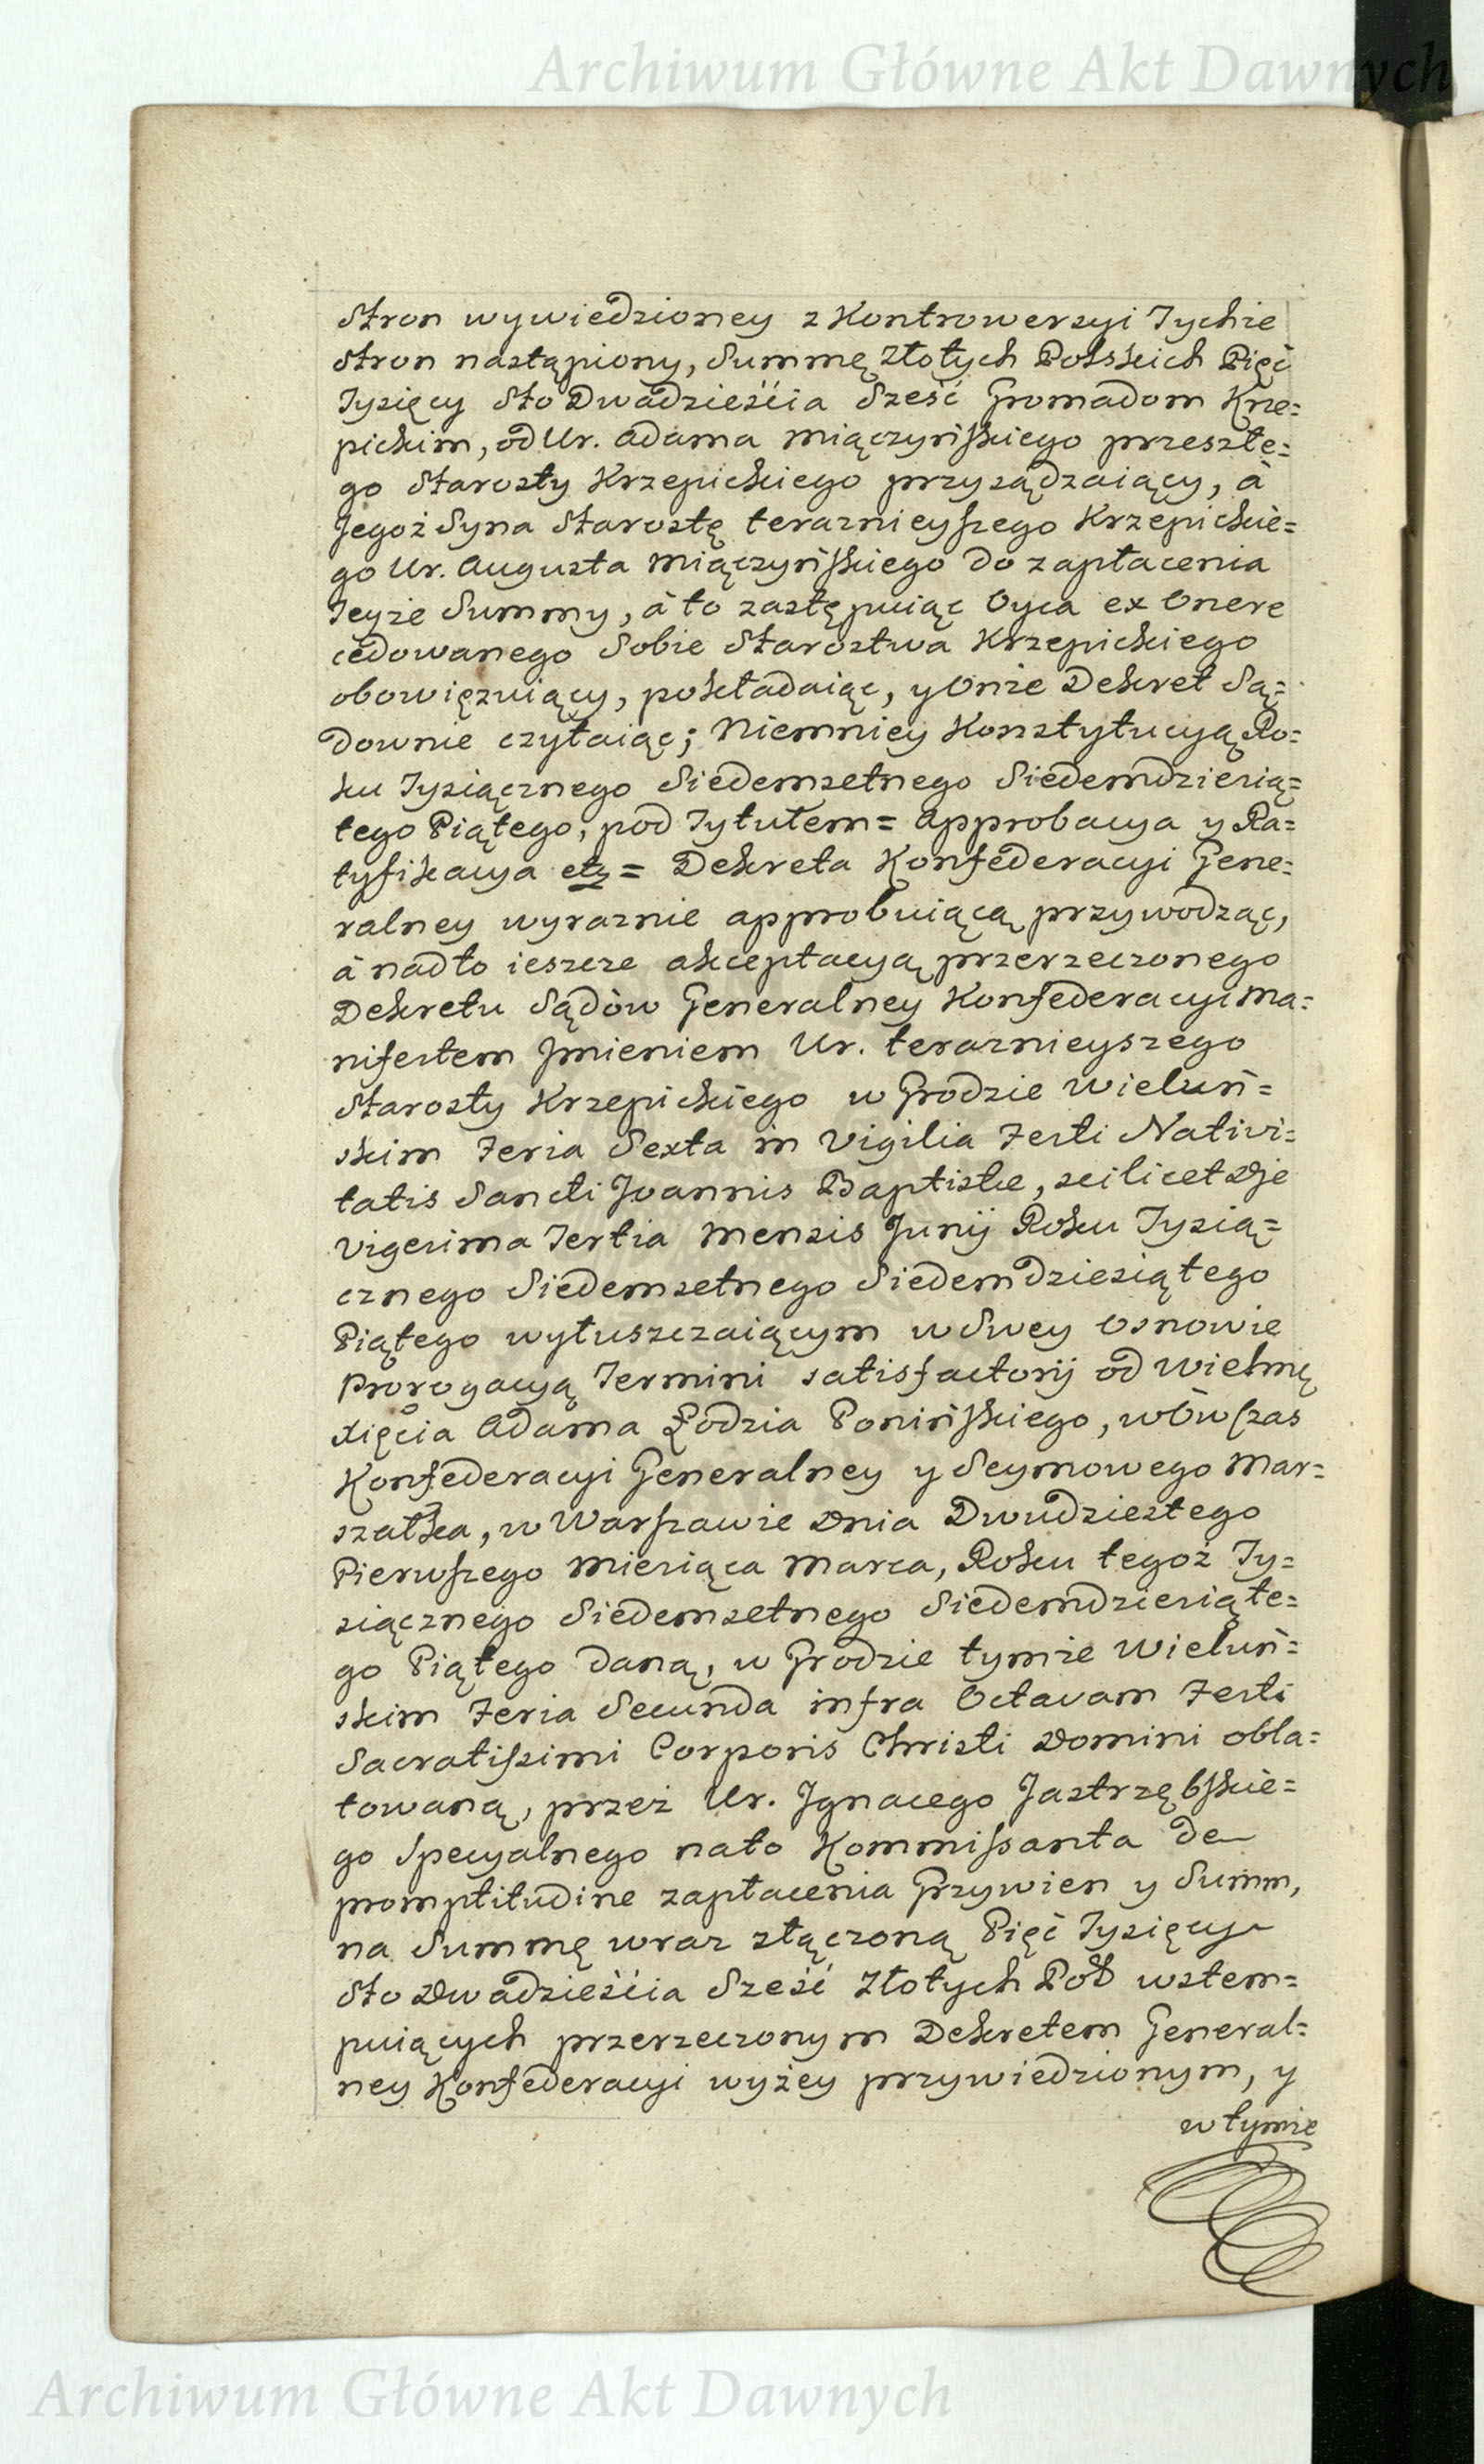 Archiwum Główne Akt Dawnych
Stron wywiedzioney z Kontrowersyi Tychże
Stron nastąpiony, Summę Złotych Polskich Pięć
Tysięcy Sto Dwadzieścia Sześć Gromadom Krze=
pickim, od Ur. Adama Miączyńskiego przeszłe=
go Starosty Krzepickiego przysądzaiący, á
Jegoż Syna Starostę teraznieyszego Krzepickie=
go Ur. Augusta Miączyńskiego do zapłacenia
Teyże Summy, á to zastępuiąc Oyca ex Onere
cedowanego Sobie Starostwa Krzepickiego
obowięzuiący, pokładaiąc, y Onże Dekret Są=
downie czytaiąc; Niemniey Konstytucyą Ro=
ku Tysiącznego Siedemsetnego Siedemdziesią=
tego Piątego, pod Tytułem = Approbacya y Ra=
tyfikacya etz = Dekreta Konfederacyi Gene=
ralney wyraznie approbuiącą przywodząc,
á nadto ieszcze akceptacyą przerzeczonego
Dekretu Sądów Generalney Konfederacyi Ma=
nifestem Jmieniem Ur. teraznieyszego
Starosty Krzepickiego w Grodzie Wieluń=
skim Feria Sexta in Vigilia Festi Nativi=
tatis Sancti Joannis Baptistæ, scilicet Die
Vigesima Tertia Mensis Junij Roku Tysią=
cznego Siedemsetnego Siedemdziesiątego
Piątego wyłuszczaiącym w Swey Osnowie
Prorogacyą Termini satisfactorij od Wielmę
Xięcia Adama Łodzia Ponińskiego, wówczas
Konfederacyi Generalney y Seymowego Mar=
szałka, w Warszawie Dnia Dwudziestego
Pierwszego Miesiąca Marca, Roku tegoż Ty=
siącznego Siedemsetnego Siedemdziesiąte=
go Piątego daną, w Grodzie tymże Wieluń=
skim Feria Secunda infra Octavam Festi
Sacratissimi Corporis Christi Domini obla=
towaną, przez Ur. Jgnacego Jastrzębskie=
go Specyalnego nato Kommissanta de
promptitudine zapłacenia Grzywien y Summ,
na Summę wraz złączoną Pięć Tysięcy
Sto Dwadzieścia Sześć Złotych Pol wstem=
puiących przerzeczonym Dekretem General=
ney Konfederacyi wyżey przywiedzionym, y
w tymże
Archiwum Główne Akt Dawnych